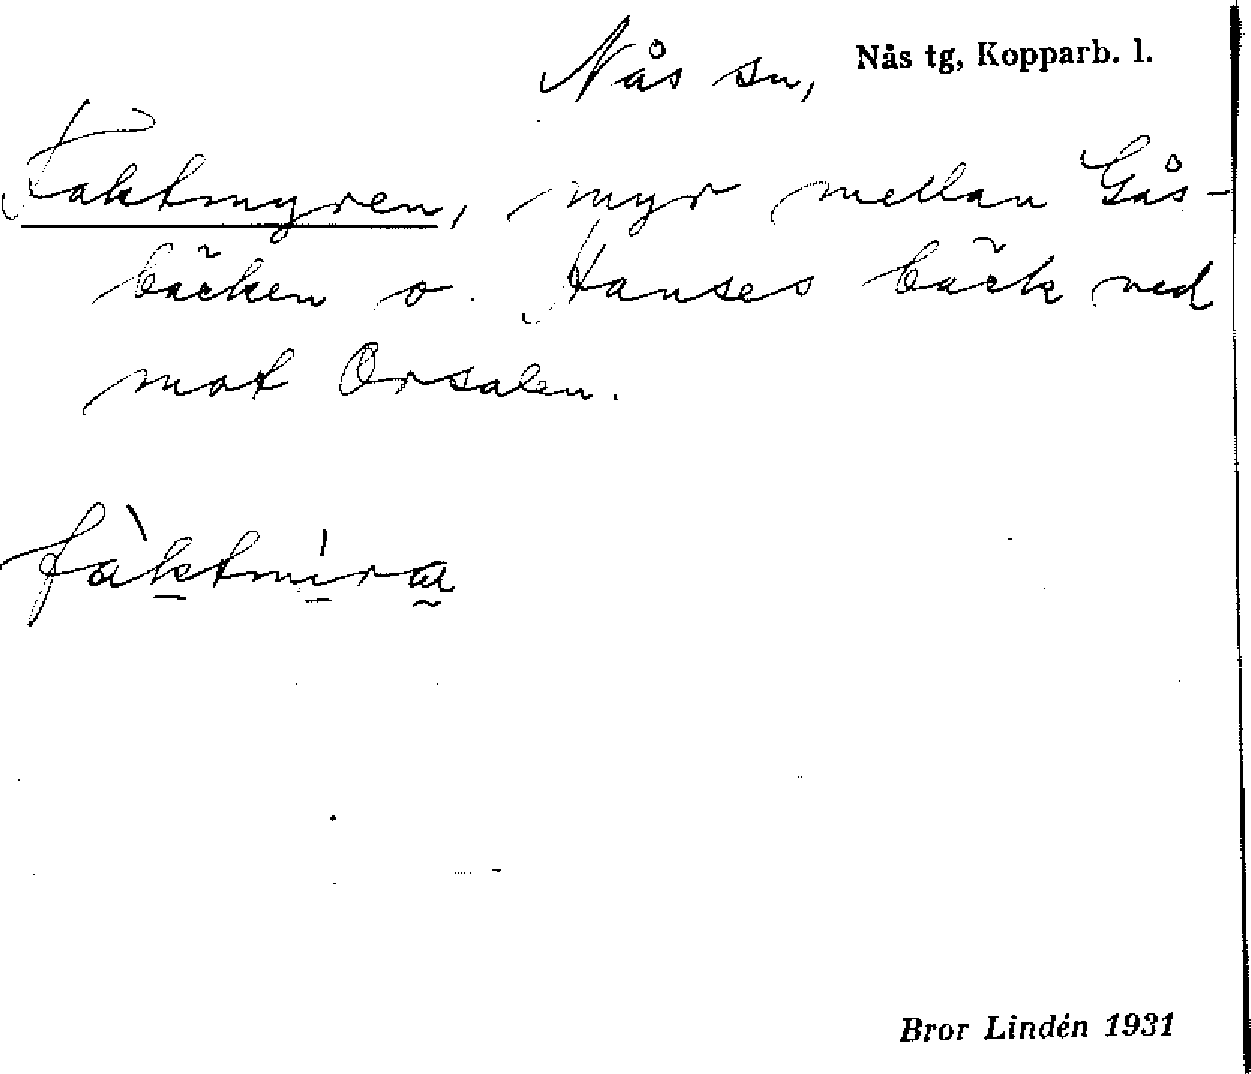 Nås sn, Nås tg, Kopparb. l.
Faktmyren, myr mellan Gås-
bäcken o. Hanses bäck ned
mot Orsalen.
fàktmìra
Bror Lindén 1931